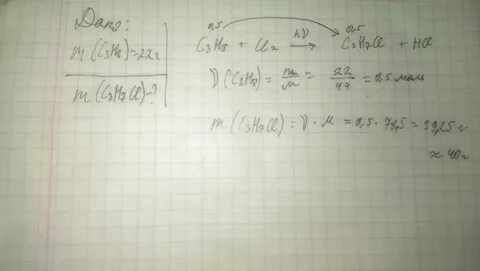 Дано:
m(C3H8)=22г
m(C3H7Cl)-?
0,5 0,5
C3H8 + Cl2 hν→ C3H7Cl + HCl
ν(C3H8) = m/M = 22/44 = 0,5 моль
m(C3H7Cl) = ν · M = 0,5 · 78,5 = 39,25 г
≈ 40г